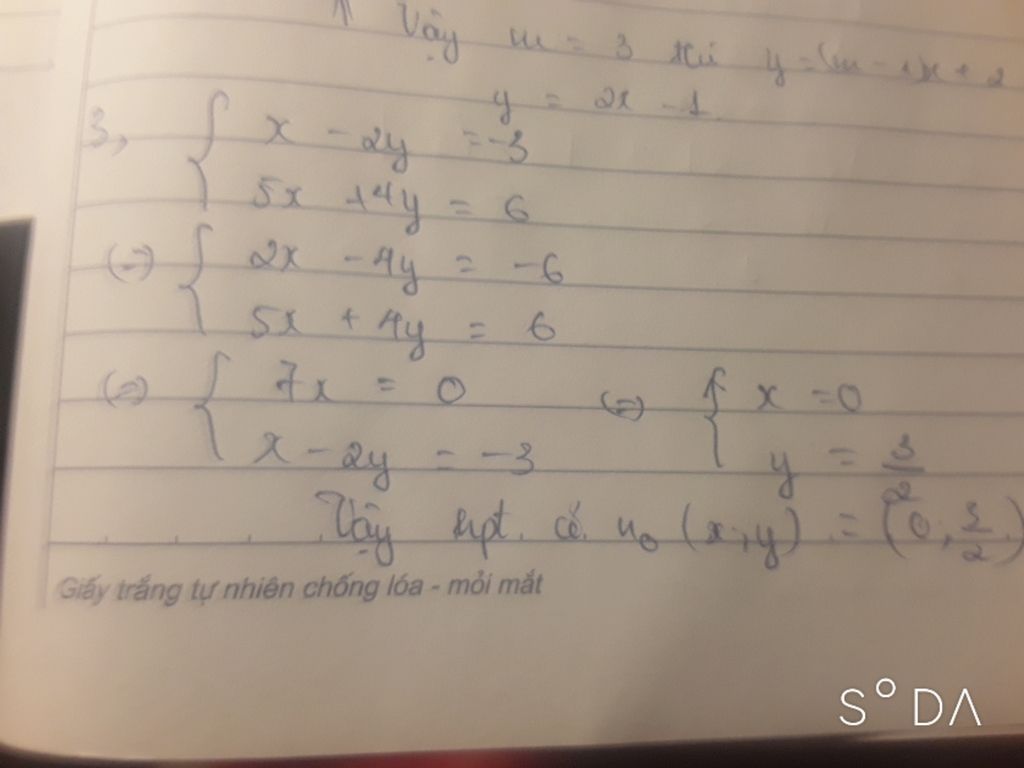 Vậy m = 3 thì y = (m - 1)x + 2
y = 2x - 1
3, { x - 2y = -3
5x + 4y = 6
(=) { 2x - 4y = -6
5x + 4y = 6
(=) { 7x = 0 (=) { x = 0
x - 2y = -3 y = 3/2
Vậy hpt có n₀ (x; y) = (0; 3/2)
Giấy trắng tự nhiên chống lóa - mỏi mắt
S°DA